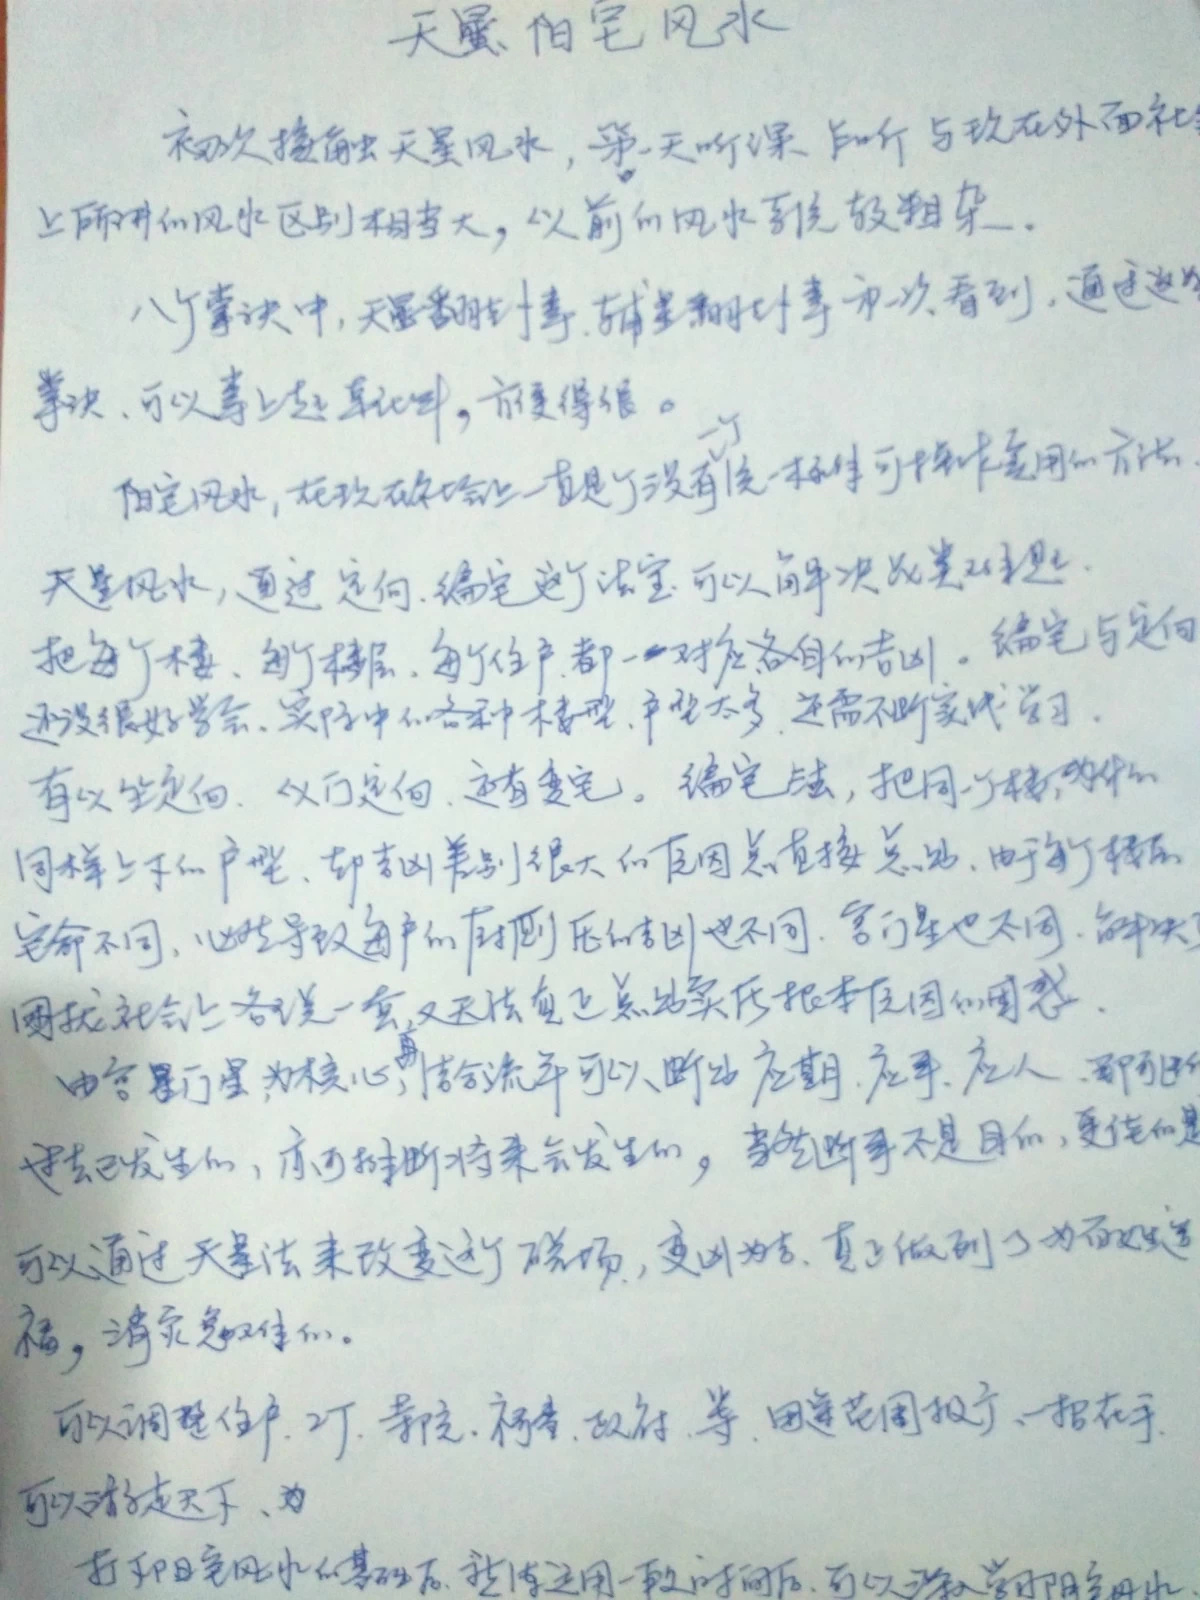 天星阳宅风水
初次接触天星风水，第一天听课 与现在外面社会
上所讲的风水区别相当大，以前的风水系统较粗杂。
八个掌诀中，天星翻卦掌、辅星翻卦掌第一次看到，通过这些
掌决、可以掌上起，方便得很。
一个
阳宅风水，在现在社会上一直是个没有统一标准可操作套用的方法、
天星风水，通过定向、编宅这个法宝可以解决此类难题、
把每个楼、每个楼层、每个住户都一一对应各自的吉凶。编宅与定向
还没很好学会、实际中的各种楼型、户型太多、还需不断实践学习、
有以坐定向、以门定向、还有变宅。编宅法，把同一个楼，为什么
同样上下的户型、却吉凶差别很大的原因总直接点出、由于每个楼层
宅命不同、必然导致每户的吉凶也不同、宫门星也不同、解决了
困扰社会上各说一套，又无法真正点出实际根本原因的困惑、
由宫星门星为核心，再结合流年可以断出应期、应事、应人、即可断
过去已发生的，亦可推断将来会发生的，当然断事不是目的，更佳的是
可以通过天星法来改变这个磁场，变凶为吉、真正做到了为百姓造
福，消灾免难的。
可以调整住户、工厂、寺院、政府、等、用途范围极广、一招在手
可以游走天下、为
打下阳宅风水的基础后、熟练运用一段时间后、可以深入学习阴宅风水、